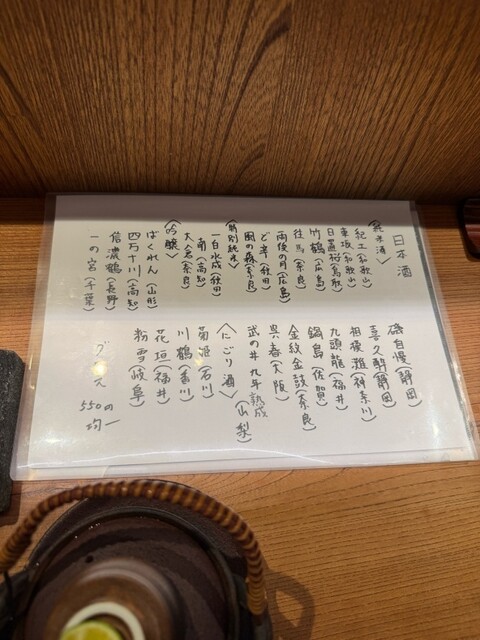 日本酒
〈純米酒〉
紀土(和歌山)
車坂(和歌山)
日置桜(鳥取)
竹鶴(広島)
往馬(奈良)
雨後の月(広島)
ど辛(秋田)
風の森(奈良)
〈特別純米〉
一白水成(秋田)
南(高知)
大倉(奈良)
〈吟醸〉
ばくれん(山形)
四万十川(高知)
信濃鶴(長野)
一の宮(千葉)
磯自慢(静岡)
喜久酔(静岡)
相模灘(神奈川)
九頭龍(福井)
鍋島(佐賀)
金紋金鼓(奈良)
呉春(大阪)
武の井九年熟成(山梨)
〈にごり酒〉
菊姫(石川)
川鶴(香川)
花垣(福井)
粉雪(岐阜)
グラス
550の均一